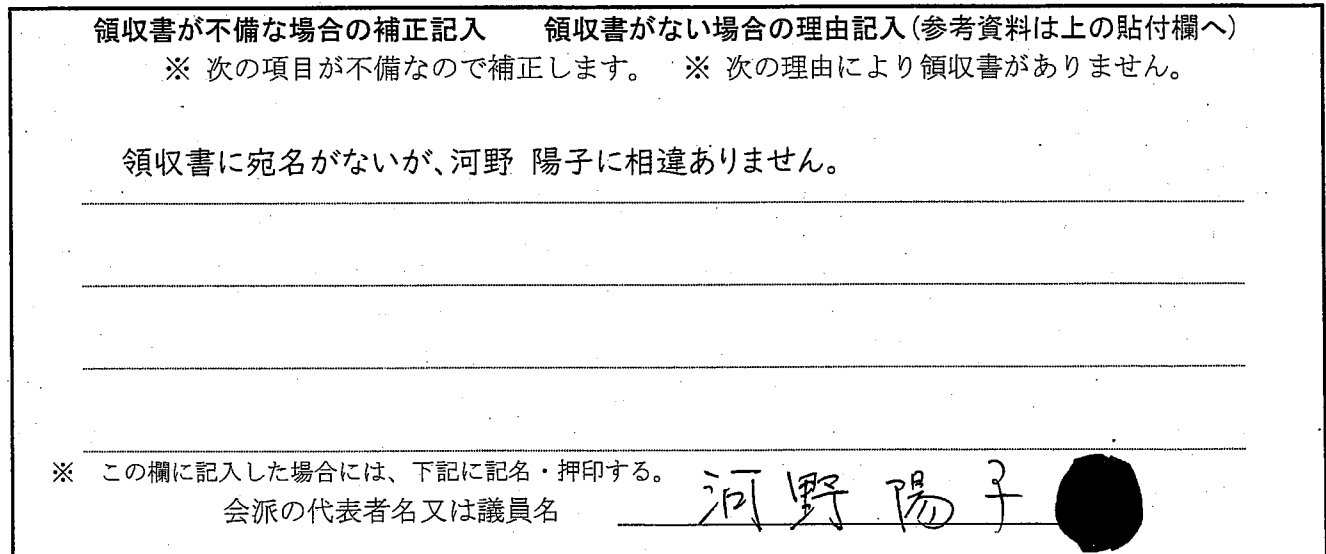 領収書が不備な場合の補正記入　領収書がない場合の理由記入(参考資料は上の貼付欄へ)
※ 次の項目が不備なので補正します。 ※ 次の理由により領収書がありません。
領収書に宛名がないが、河野 陽子に相違ありません。
※ この欄に記入した場合には、下記に記名・押印する。
会派の代表者名又は議員名 河野陽子